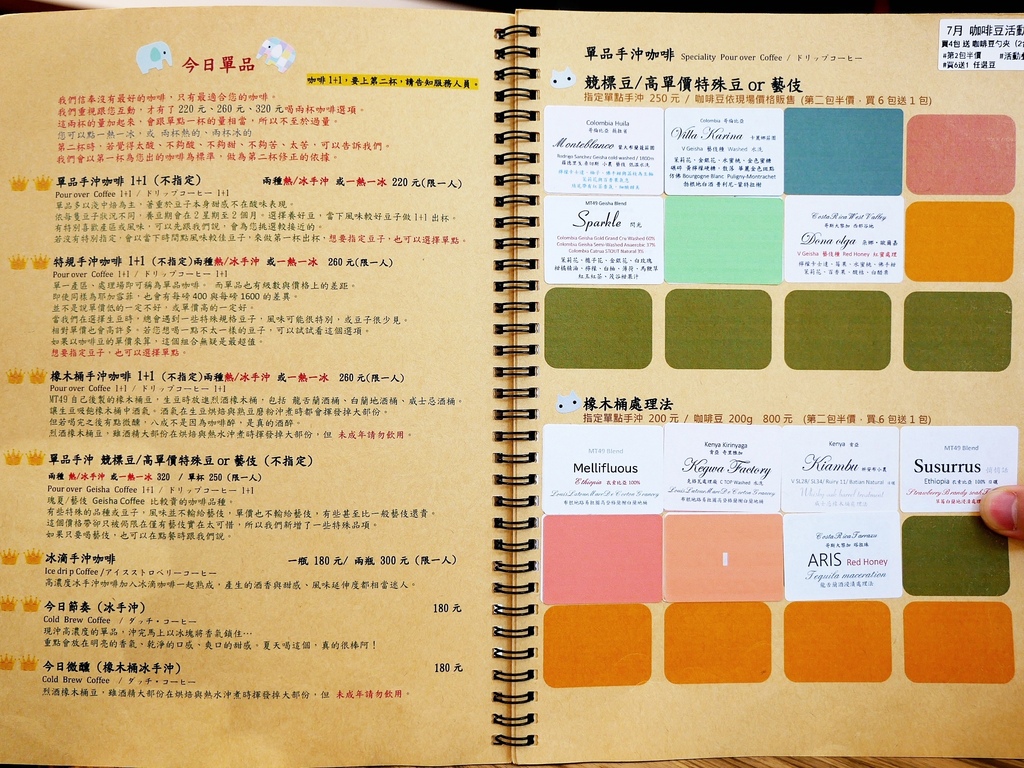 今日單品
咖啡 1+1,要上第二杯,請告知服務人員。
我們信奉沒有最好的咖啡,只有最適合您的咖啡。
我們重視跟您互動,才有了 220 元、260 元、320 元喝兩杯咖啡選項。
兩杯的量加起來,會跟單點一杯的量相當,所以不至於過量。
您可以點一熱一冰,或 兩杯熱的、兩杯冰的
第二杯時、若覺得太酸、不夠酸、不夠甜、不夠苦、太苦,可以告訴我們。
我們會以第一杯為您出的咖啡為標準,做為第二杯修正的依據。
單品手沖咖啡 1+1 (不指定) 兩種熱/冰手沖 或一熱一冰 220 元(限一人)
Pour over Coffee 1+1 / ドリップコーヒー 1+1
單品多以淺中焙為主,著重於豆子本身甜感不在酸味表現。
依每隻豆子狀況不同,養豆期會在 2 星期至 2 個月。選擇養好豆,當下風味較好豆子做 1+1 出杯。
有特別喜歡產區或風味,可以先跟我們說,會為您挑選較接近的。
若沒有特別指定,會以當下時間點風味較佳豆子,來做第一杯出杯,想要指定豆子,也可以選擇單點。
特規手沖咖啡 1+1 (不指定)兩種熱/冰手沖 或一熱一冰 260 元(限一人)
Pour over Coffee 1+1 / ドリップコーヒー 1+1
單一產區、處理場即可稱為單品咖啡。 而單品也有級數與價格上的差距。
即使同樣為耶加雪菲,也會有每磅 400 與每磅 1600 的差異。
並不是說單價低的一定不好,或單價高的一定好。
當我們在選擇生豆時,總會遇到一些特殊規格豆子,風味可能很特別,或豆子很少見。
相對單價也會高許多。若您想喝一點不太一樣的豆子,可以試試看這個選項。
如果以咖啡豆的單價來算,這個組合無疑是最超值。
想要指定豆子,也可以選擇單點。
橡木桶手沖咖啡 1+1 (不指定)兩種熱/冰手沖 或一熱一冰 260 元(限一人)
Pour over Coffee 1+1 / ドリップコーヒー 1+1
MT49 自己後製的橡木桶豆,生豆時就進烈酒橡木桶,包括 龍舌蘭酒桶、白蘭地酒桶、威士忌酒桶。
讓生豆吸飽橡木桶中酒氣。酒氣在生豆烘焙與熟豆磨粉沖煮時都會揮發掉大部份。
但若喝完之後有點微醺,八成不是因為咖啡醉,是真的酒醉。
烈酒橡木桶豆,雖酒精大部份在烘焙與熱水沖煮時揮發掉大部份,但 未成年請勿飲用。
單品手沖 競標豆/高單價特殊豆 or 藝伎 (不指定)
兩種 熱/冰手沖 或一熱一冰 320 / 單杯 250 (限一人)
Pour over Geisha Coffee 1+1 / ドリップコーヒー 1+1
瑰夏/藝伎 Geisha Coffee 比較貴的咖啡品種。
有些特殊的品種或豆子,風味並不輸給藝伎,單價也不輸給藝伎,有些甚至比一般藝伎還貴。
這個價格帶卻只被侷限在僅有藝伎實在太可惜,所以我們新增了一些特殊品項。
如果只要喝藝伎,也可在點餐時跟我們說。
冰滴手沖咖啡 一瓶 180 元/ 兩瓶 300 元 (限一人)
Ice drip Coffee /アイスストロベリーコーヒー
高濃度冰手沖咖啡加入冰滴咖啡一起熟成,產生的酒香與甜感、風味延伸度都相當迷人。
今日節奏 (冰手沖) 180 元
Cold Brew Coffee / ダッチ・コーヒー
現沖高濃度的單品,沖完馬上以冰塊將香氣鎖住…
重點會放在明亮的香氣,乾淨的口感,爽口的甜感。夏天喝這個,真的很棒阿!
今日微醺 (橡木桶冰手沖) 180 元
Cold Brew Coffee / ダッチ・コーヒー
烈酒橡木桶豆,雖酒精大部份在烘焙與熱水沖煮時揮發掉大部份,但 未成年請勿飲用。
7月 咖啡豆活動
買4包 送 咖啡豆勺夾
#第2包半價
#買6送1 任選豆
單品手沖咖啡 Speciality Pour over Coffee / ドリップコーヒー
競標豆/高單價特殊豆 or 藝伎
指定單點手沖 250 元 / 咖啡豆依現場價格販售 (第二包半價,買 6 包送 1 包)
Colombia Huila
哥倫比亞 薇拉省
Monteblanco 蒙大布蘭屋莊園
Rodrigo Sanchez Geisha cold washed / 1800m
Colombia
哥倫比亞
Villa Karina 卡麗娜莊園
V Geisha 藝伎種 Washed 水洗
茉莉花、金銀花、水蜜桃、金色蜜糖
彷彿 Bourgogne Blanc Puligny-Montrachet
勃根地白酒 普利尼-蒙特拉榭
MT49 Geisha Blend
Sparkle 閃光
Colombia Geisha Gold Grand Cru Washed 60%
茉莉花、梔子花、金銀花、白玫瑰
柑橘精油、檸檬、白柚、薄荷、馬鞭草
紅玉紅茶、茂谷柑果汁
Costa Rica West Valley
哥斯大黎加 西部谷地
Dona olga 朵娜·歐爾嘉
V Geisha 藝伎種 Red Honey 紅蜜處理
檸檬卡士達、莓果、水蜜桃、佛手柑
茉莉花、百香果、楓糖、白酷栗
橡木桶處理法
指定單點手沖 200 元 / 咖啡豆 200g 800 元 (第二包半價,買 6 包送 1 包)
MT49 Blend
Mellifluous
Ethiopia 衣索比亞 100%
Kenya Kirinyaga
肯亞 奇里雅加
Kegwa Factory
Kenya 肯亞
Kiambu
MT49 Blend
Susurrus
Ethiopia 衣索比亞 100% 日曬
Costa Rica Tarrazu
哥斯大黎加 塔拉珠
ARIS Red Honey
Tequila maceration
龍舌蘭酒浸漬處理法